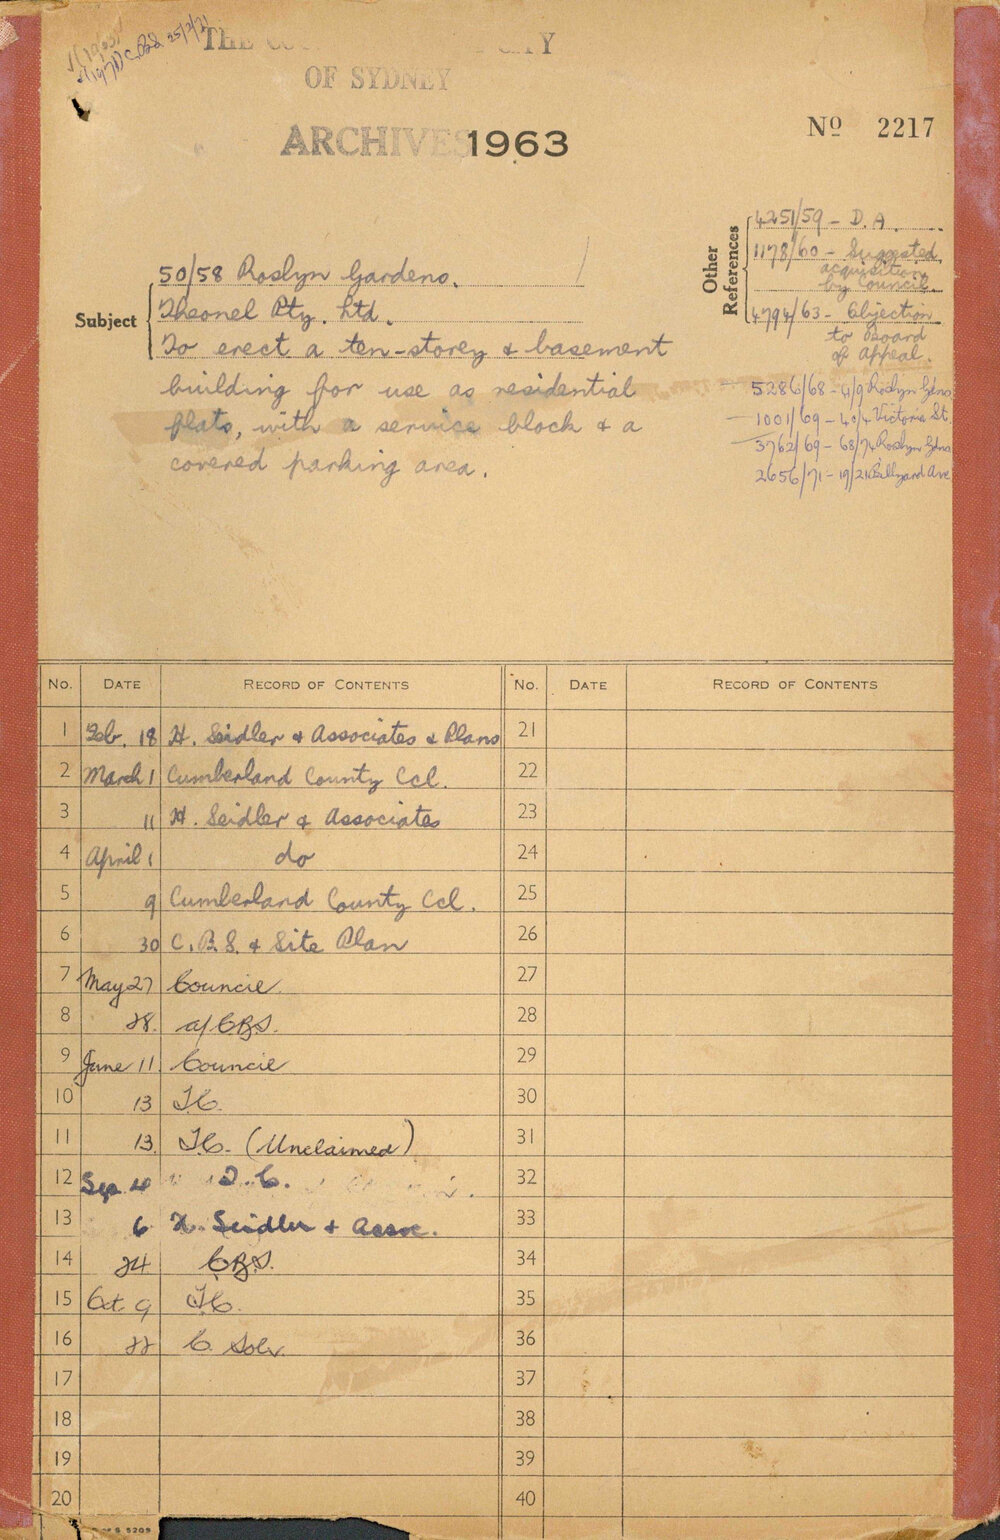 THE CITY
OF SYDNEY
ARCHIVES 1963
Nº 2217
Other References
4251/59 - D.A.
1178/60 - Suggested
acquisition
by Council.
4794/63 - Objection
to Board
of Appeal.
5286/68 - 4/9 Roslyn Gdns
1001/69 - Victoria St.
3762/69 - 68/74 Roslyn Gdns
2656/71 - 19/21 Billyard Ave
Subject
50/58 Roslyn Gardens.
Theonel Pty. Ltd.
To erect a ten-storey & basement
building for use as residential
flats, with a service block & a
covered parking area.
No. DATE RECORD OF CONTENTS No. DATE RECORD OF CONTENTS
1 Feb. 18 H. Seidler & Associates & Plans 21
2 March 1 Cumberland County Ccl. 22
3 11 H. Seidler & Associates 23
4 April 1 do 24
5 9 Cumberland County Ccl. 25
6 30 C.B.S. & Site Plan 26
7 May 27 Council 27
8 28. a/CBS. 28
9 June 11 Council 29
10 13 T.C. 30
11 13. T.C. (Unclaimed) 31
12 Sep. 4 T.C. 32
13 6 H. Seidler & Assoc. 33
14 24 CBS. 34
15 Oct. 9 T.C. 35
16 22 C. Solr. 36
17 37
18 38
19 39
20 40
S 5209